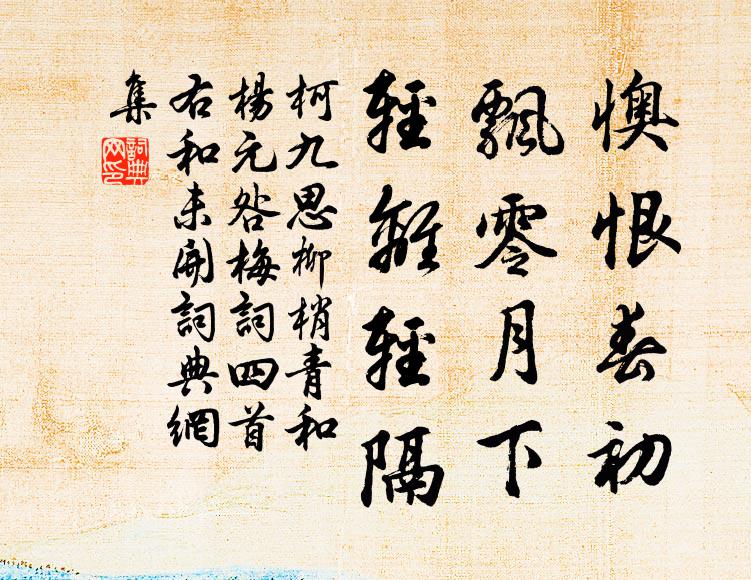 懊恨春初
飄零月下
輕離輕隔
柯九思柳梢青和
楊无咎梅詞四首
右和未開詞典網
集
詞典
网印